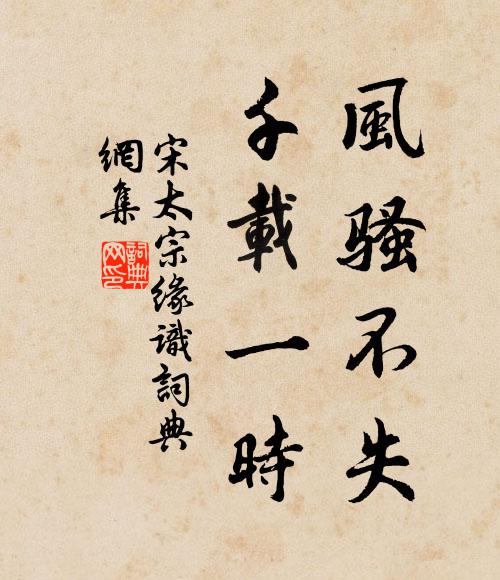 風騷不失
千載一時
宋太宗緣識詞典
網集
詞典
网印